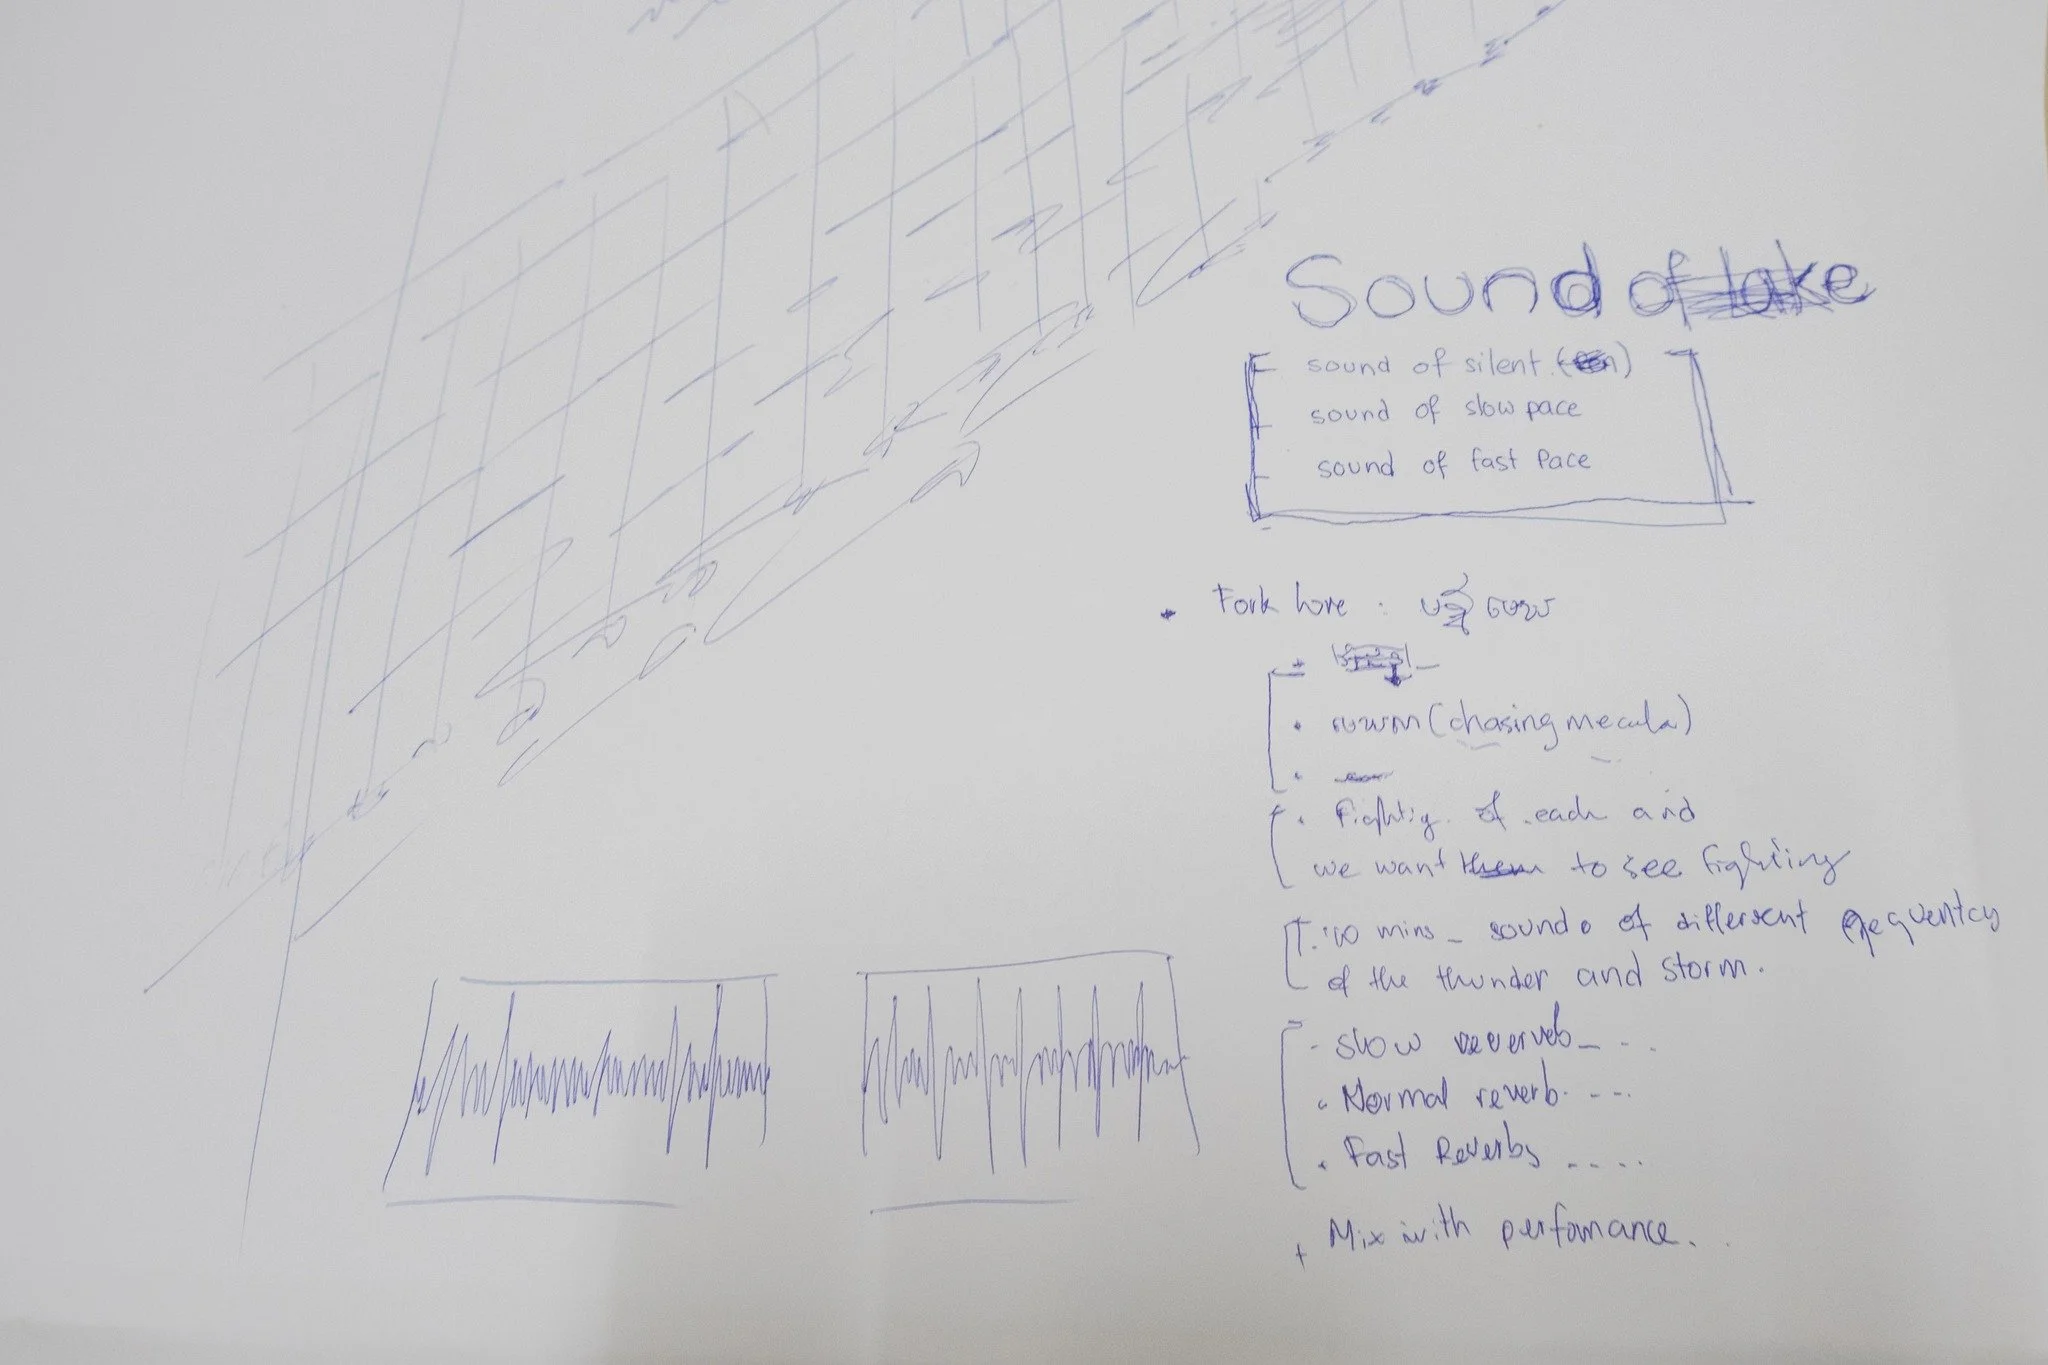 Sound of lake
sound of silent
sound of slow pace
sound of fast Pace
Fork lore :
(chasing mecula)
Fightig of each and
we want them to see fighting
10 mins _ sound of differsent
of the thunder and storm.
- slow reververb_ - -
Normal reverb. - - -
Fast Reverbs - - - -
+ Mix with perfomance. . .